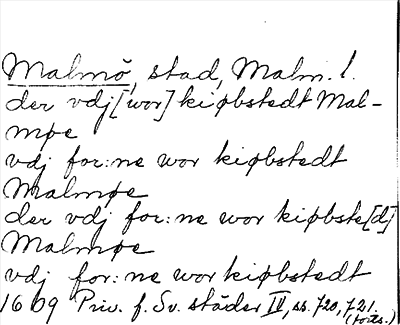 Malmö, stad, Malm. l.
der vdj[wor] kiøbstedt Mal-
møe
vdj for:ne wor kiøbstedt
Malmøe
der vdj for:ne wor kiøbste[d]
Malmøe
vdj for:ne wor kiøbstedt
1609 Priv. f. Sv. städer IV, ss. 720, 721.
(forts.)